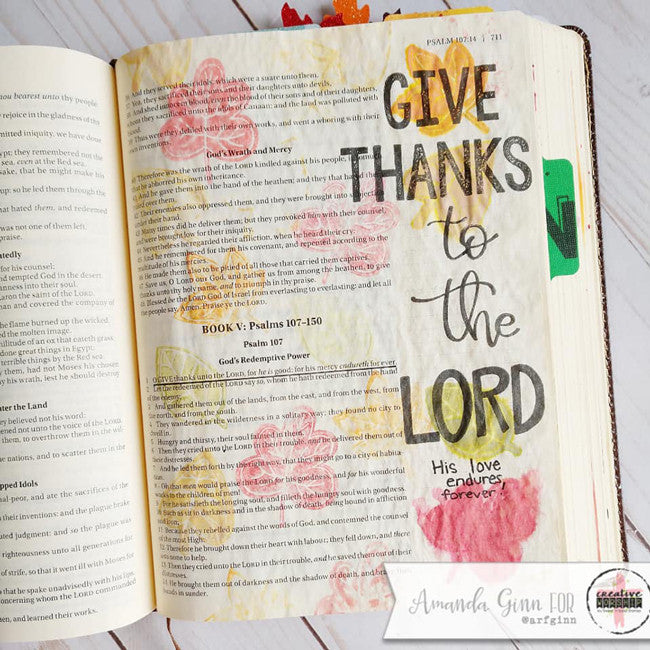 PSALM 107:14 | 711
thou bearest unto thy people
rejoice in the gladness of thy
mitted iniquity, we have done
ypt; they remembered not the
sea, even at the Red sea.
sake, that he might make his
up: so he led them through the
that hated them, and redeemed
was not one of them left.
praise.
for his counsel:
and tempted God in the desert.
leanness into their soul.
Aaron the saint of the LORD.
and covered the company of
the flame burned up the wicked.
the molten image.
similitude of an ox that eateth grass.
done great things in Egypt;
terrible things by the Red sea.
them, had not Moses his chosen
away his wrath, lest he should destroy
ter the Land
they believed not his word:
not unto the voice of the LORD.
them, to overthrow them in the
nations, and to scatter them in the
pped Idols
and ate the sacrifices of the
their inventions: and the plague brake
judgment: and so the plague was
righteousness unto all generations for
of strife, so that it went ill with Moses for
so that he spake unadvisedly with his lips.
concerning whom the LORD commanded
and learned their works.
36 And they served their idols: which were a snare unto them.
37 Yea, they sacrificed their sons and their daughters unto devils,
shed innocent blood, even the blood of their sons and of their daughters,
whom they sacrificed unto the idols of Canaan: and the land was polluted with
39 Thus were they defiled with their own works, and went a whoring with their
own inventions.
God's Wrath and Mercy
40 Therefore was the wrath of the LORD kindled against his people,
that he abhorred his own inheritance.
41 And he gave them into the hand of the heathen; and they that hated
ruled over them.
42 Their enemies also oppressed them, and they were brought into subjection
under their hand.
43 Many times did he deliver them; but they provoked him with their counsel,
and were brought low for their iniquity.
44 Nevertheless he regarded their affliction, when he heard their cry:
45 And he remembered for them his covenant, and repented according to the
multitude of his mercies.
46 He made them also to be pitied of all those that carried them captives.
47 Save us, O LORD our God, and gather us from among the heathen, to give
thanks unto thy holy name, and to triumph in thy praise.
48 Blessed be the LORD God of Israel from everlasting to everlasting: and let all
the people say, Amen. Praise ye the LORD.
BOOK V: Psalms 107–150
Psalm 107
God's Redemptive Power
1 O GIVE thanks unto the LORD, for he is good: for his mercy endureth for ever.
2 Let the redeemed of the LORD say so, whom he hath redeemed from the hand
of the enemy;
3 And gathered them out of the lands, from the east, and from the west, from
the north, and from the south.
4 They wandered in the wilderness in a solitary way; they found no city to
dwell in.
5 Hungry and thirsty, their soul fainted in them.
6 Then they cried unto the LORD in their trouble, and he delivered them out of
their distresses.
7 And he led them forth by the right way, that they might go to a city of habita-
tion.
8 Oh that men would praise the LORD for his goodness, and for his wonderful
works to the children of men!
9 For he satisfieth the longing soul, and filleth the hungry soul with goodness.
10 Such as sit in darkness and in the shadow of death, being bound in affliction
and iron;
11 Because they rebelled against the words of God, and contemned the counsel
of the most High:
12 Therefore he brought down their heart with labour; they fell down, and there
was none to help.
13 Then they cried unto the LORD in their trouble, and he saved them out of their
distresses.
14 He brought them out of darkness and the shadow of death, and brake their
bands in sunder.
GIVE
THANKS
to
the
LORD
His love
endures
forever!
Amanda Ginn FOR
@arfginn
creative
WORSHIP